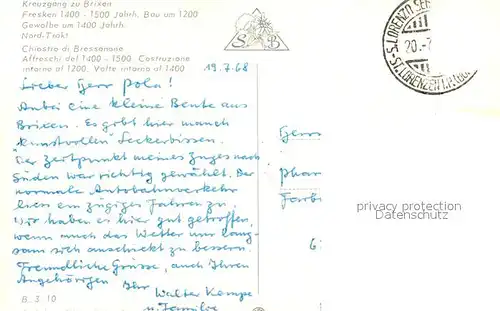 Kreuzgang zu Brixen
Fresken 1400 - 1500 Jahrh. Bau um 1200
Gewölbe um 1400 Jahrh.
Nord-Trakt
Chiostro di Bressanone
Affreschi del 1400 - 1500. Costruzione
intorno al 1200. Volte intorno al 1400
S B
S. LORENZO
ST. LORENZEN
20.-7.
19.7.68
Lieber Herr Pola!
Anbei eine kleine Beute aus
Brixen. Es gibt hier manch
"kunstvollen" Leckerbissen.
Der Zeitpunkt meines Zuges nach
Süden war richtig gewählt. Der
normale Autobahnverkehr
liess ein zügiges Fahren zu.
Wir haben es hier gut getroffen,
wenn auch das Wetter nur lang-
sam sich anschickt zu bessern.
Freundliche Grüsse, auch Ihren
Angehörigen Ihr
Walter Kampe
u. Familie
B. 3 10
Herrn
Phar
Farb
6
privacy protection
Datenschutz